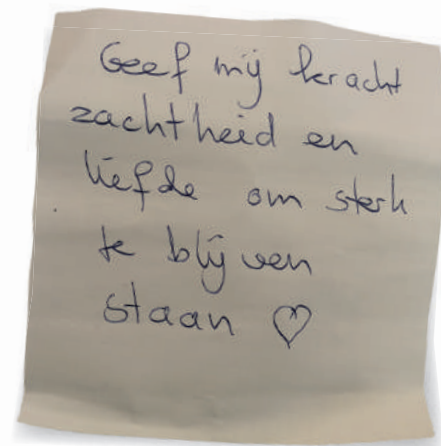 Geef mij kracht
zachtheid en
liefde om sterk
te blijven
staan ♡